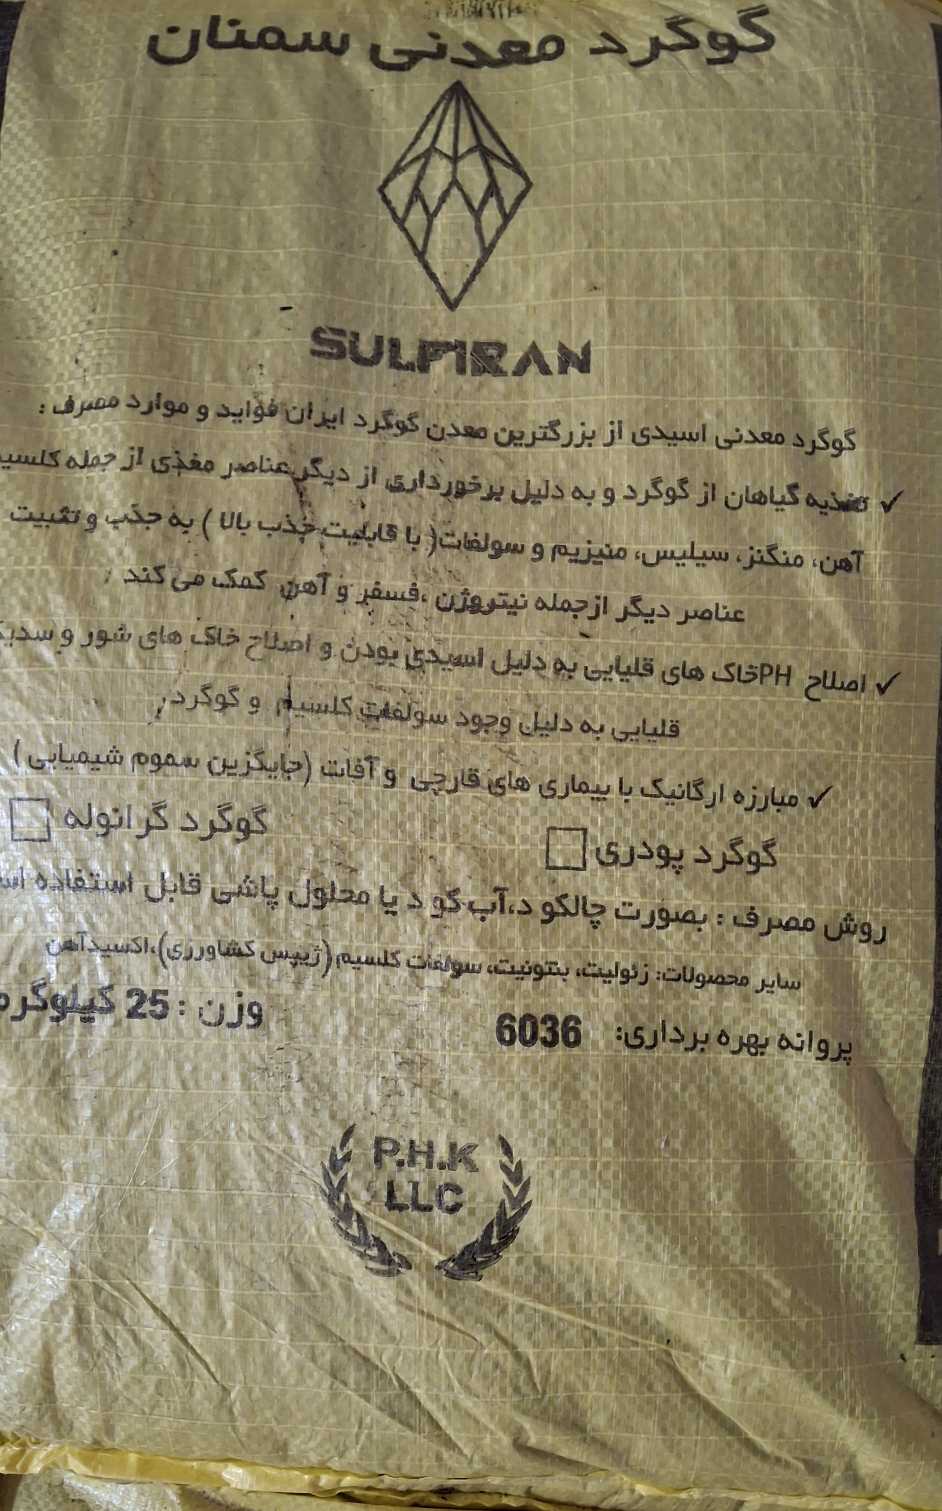 گوگرد معدنی سمنان
SULFIRAN
گوگرد معدنی اسیدی از بزرگترین معدن گوگرد ایران فواید و موارد مصرف :
✓ تغذیه گیاهان از گوگرد و به دلیل برخورداری از دیگر عناصر مغذی از جمله
آهن، منگنز، سیلیس، منیزیم و سولفات( با قابلیت جذب بالا ) به جذب و تثبیت
عناصر دیگر ازجمله نیتروژن ،فسفر و آهن کمک می کند
✓ اصلاح PHخاک های قلیایی به دلیل اسیدی بودن و اصلاح خاک های شور و
قلیایی به دلیل وجود سولفات کلسیم و گوگرد
✓ مبارزه ارگانیک با بیماری های قارچی و آفات (جایگزین سموم شیمیایی )
گوگرد پودری گوگرد گرانوله
روش مصرف : بصورت چالکو د،آب گو د یا محلول پاشی قابل استفاده
سایر محصولات: زئولیت، بنتونیت، سولفات کلسیم (ژیپس کشاورزی)،اکسیدآهن
پروانه بهره برداری: 6036 وزن : 25 کیلوگرم
P.H.K
LLC